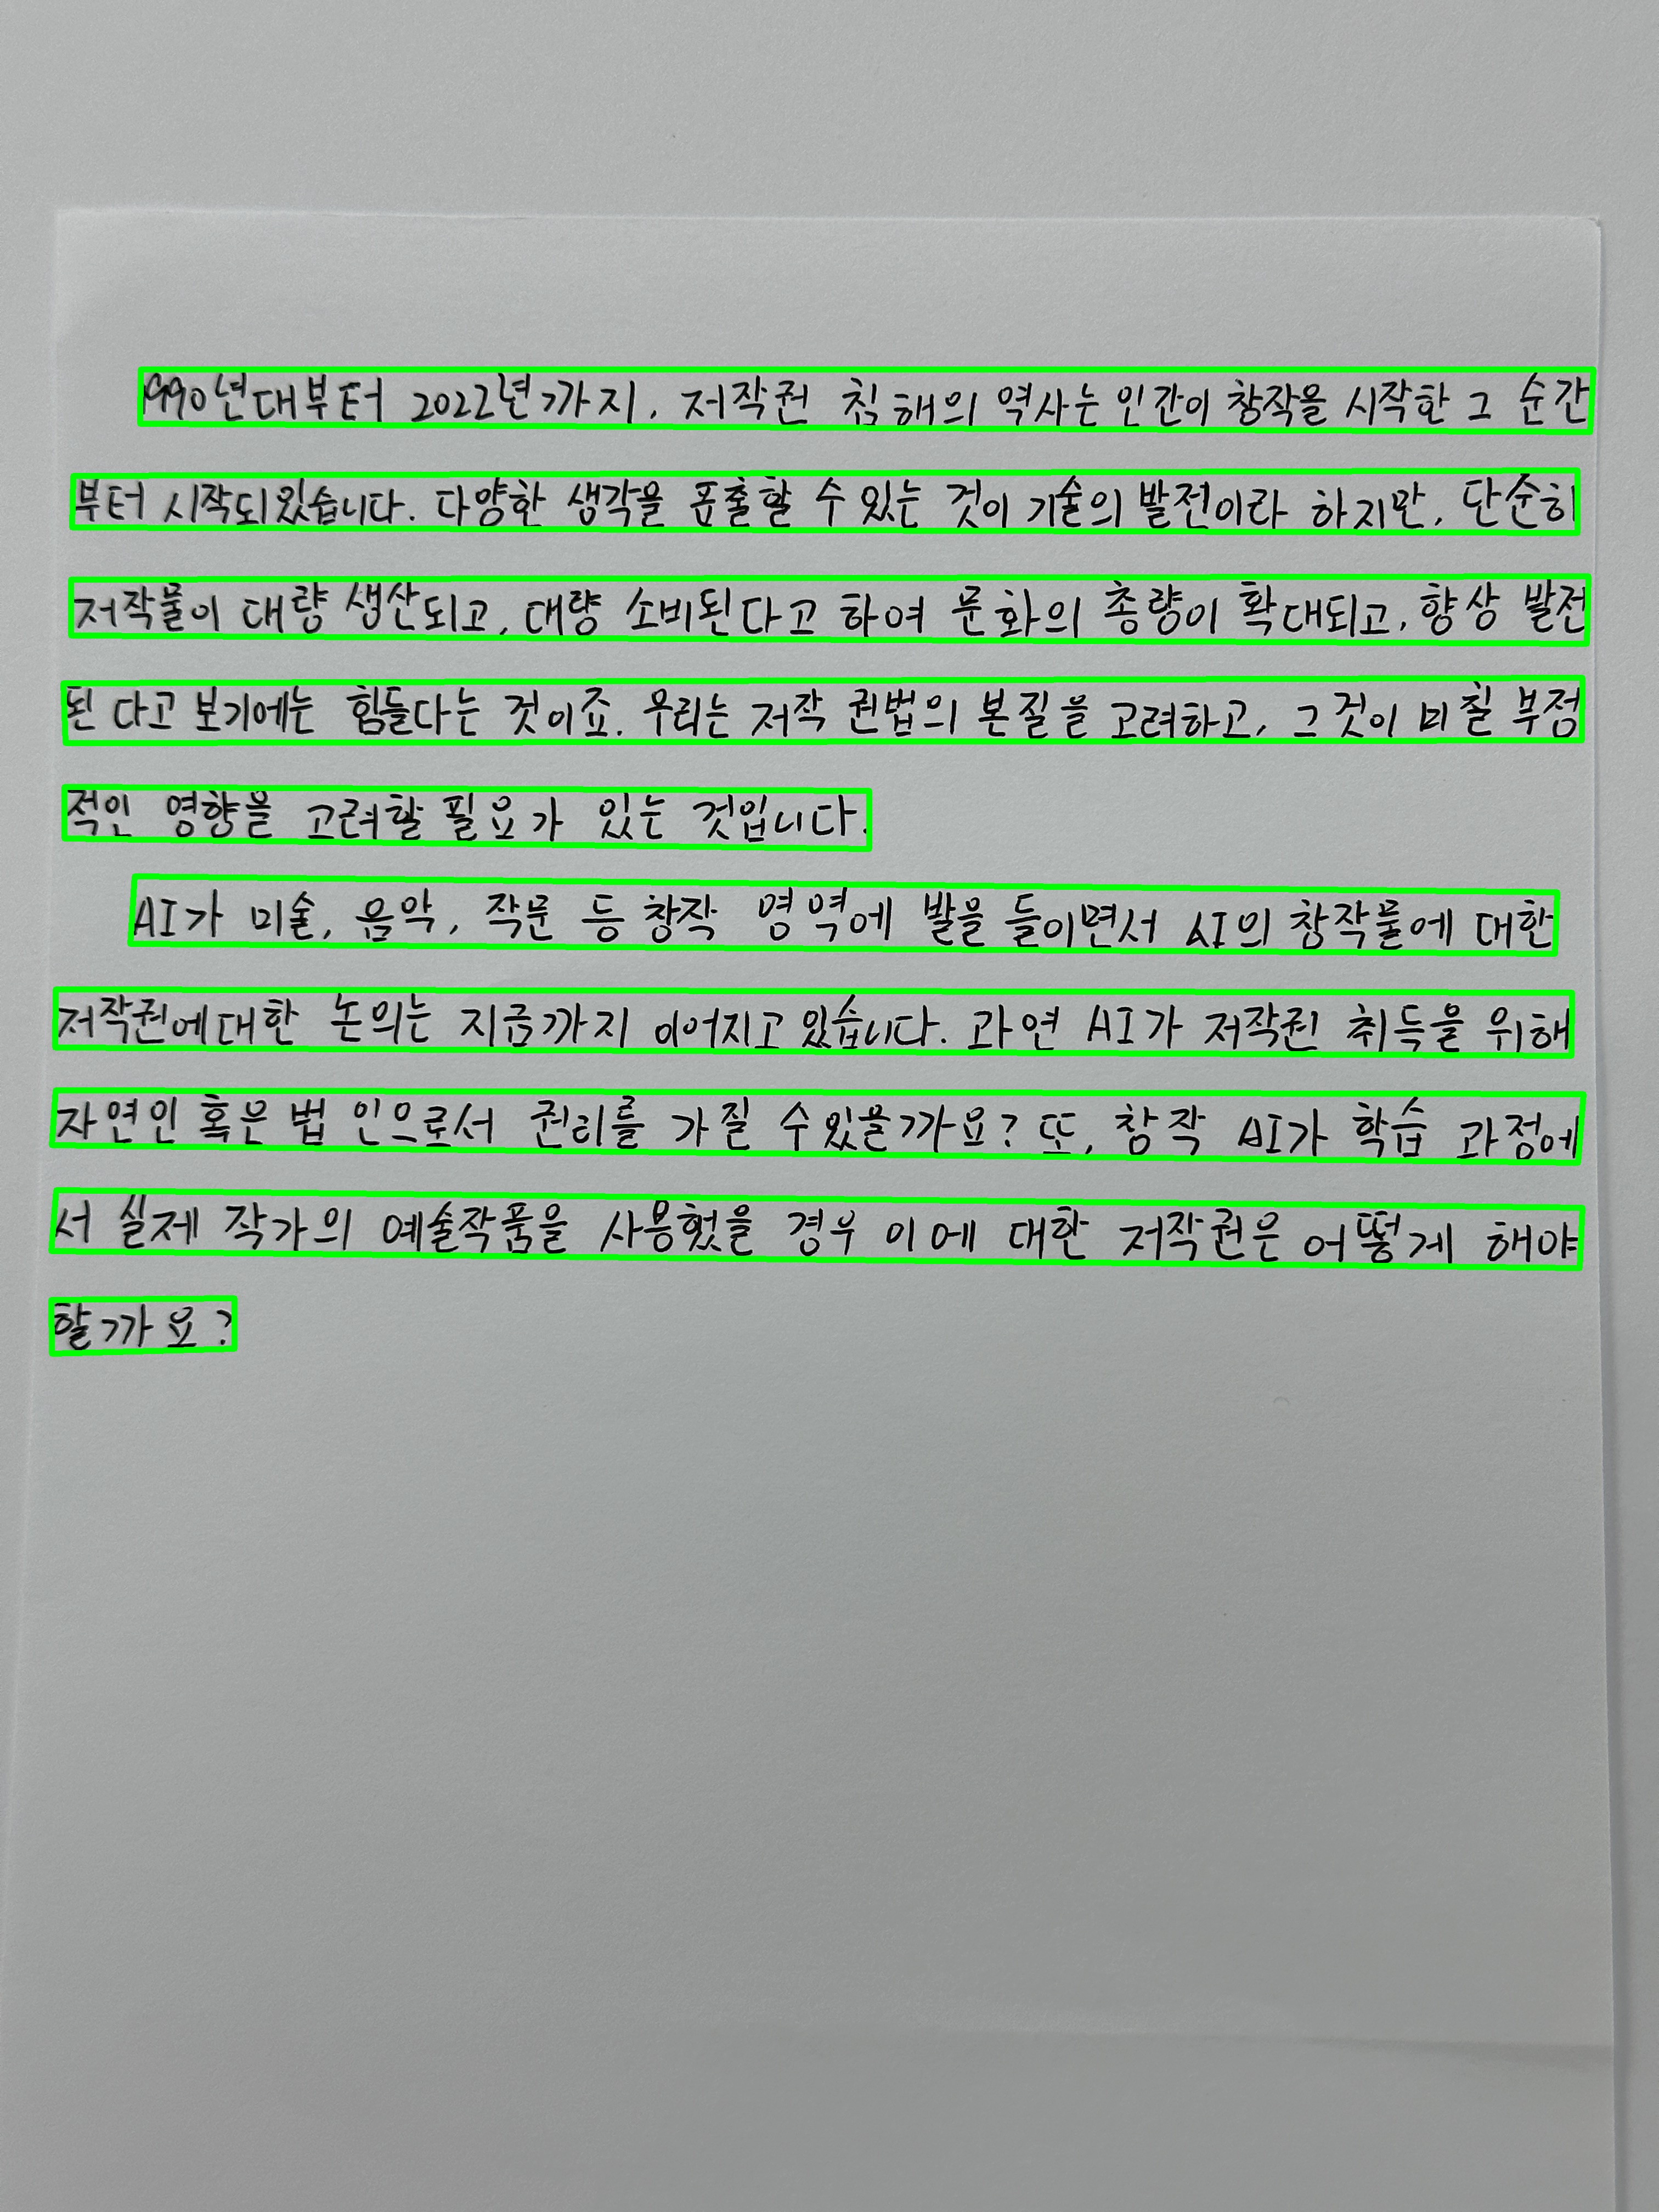 1990년대부터 2022년까지, 저작권 침해의 역사는 인간이 창작을 시작한 그 순간
부터 시작되있습니다. 다양한 생각을 표출할 수 있는 것이 기술의 발전이라 하지만, 단순히
저작물이 대량 생산되고, 대량 소비된다고 하여 문화의 총량이 확대되고, 향상 발전
된 다고 보기에는 힘들다는 것이죠. 우리는 저작 권법의 본질을 고려하고, 그것이 미칠 부정
적인 영향을 고려할 필요가 있는 것입니다.
AI가 미술, 음악, 작문 등 창작 영역에 발을 들이면서 AI의 창작물에 대한
저작권에대한 논의는 지금까지 이어지고 있습니다. 과연 AI가 저작권 취득을 위해
자연인 혹은 법인으로서 권리를 가질 수있을까요? 또, 창작 AI가 학습 과정에
서 실제 작가의 예술작품을 사용했을 경우 이에 대한 저작권은 어떻게 해야
할까요?